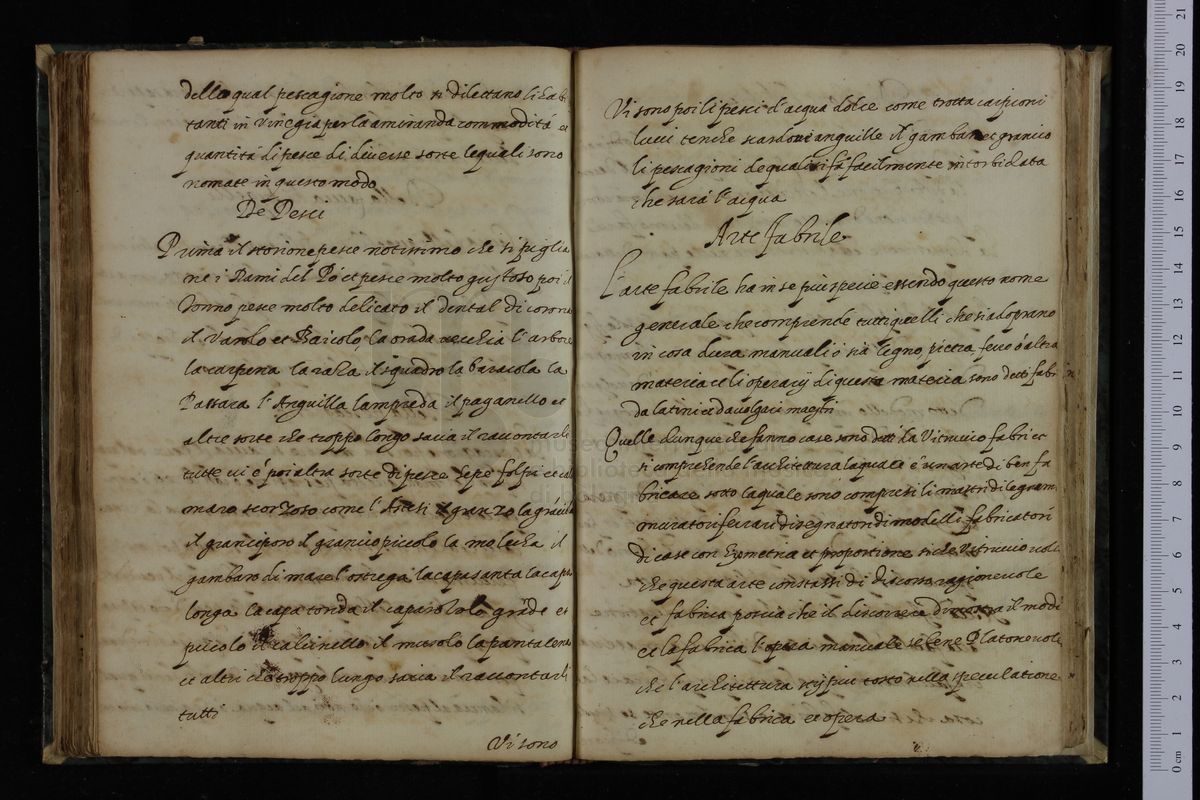 della qual pescagione molto si dilettano li hab
tanti in Vinegia per la amiranda commodità et
quantità di pesce di diverse sorte le quali sono
nomate in questo modo
De Pesci
Prima il storione pesce notissimo che si piglia
ne i Rami del Pò et pesce molto gustoso poi il
Tonno pesce molto delicato il dental di corona
il Varolo et Baicolo, la orada vecchia l'arbore
la carpena la raza il squadro la baracola la
Passara l'Anguilla lampreda il paganello et
altre sorte che troppo longo saria il raccontarli
tutte vi è poi altra sorte di pesce sepe folpi et
maro scorzoso come l'Astesi granzo la
il granciporo il grancio piccolo la molecha il
gambaro di mare l'ostrega la capa santa la capa
longa la capa tonda il caparozolo gräde et
piccolo il calcinello il musolo la pantalena
et altri che troppo lungo saria il raccontarli
tutti
Vi sono
Vi sono poi li pesci d'acqua dolce come trotta carpioni
lucci tenche scardove anguille il gambaro et grancio
li pescagioni de quali si fa facilmente intorbidata
che sarà l'acqua
Arte fabrile
L'arte fabrile ha in se più specie essendo questo nome
generale che comprende tutti quelli che si adoprano
in cosa dura manuali ò sia legno, pietra, ferro ò altra
materia et li operarij di questa materia sono detti fabri
da latini et da volgari maestri
Quelle dunque che fanno case sono detti da Vitruvio fabri et
si comprehende l'architettura la quale è un arte di ben fa
bricare sotto la quale sono compresi li mastri di legnam
muratori ferrari disegnatori di modelli fabricatori
di case con Geometria et proportione si che Vitruvio vole
che questa arte constassi di discorso ragionevole
et fabrica poscia che il discorrere dimostra il modo
et la fabrica l'opera manuale se bene Platone vole
che l'architettura stij piu tosto nella speculatione
che nella fabrica et opera